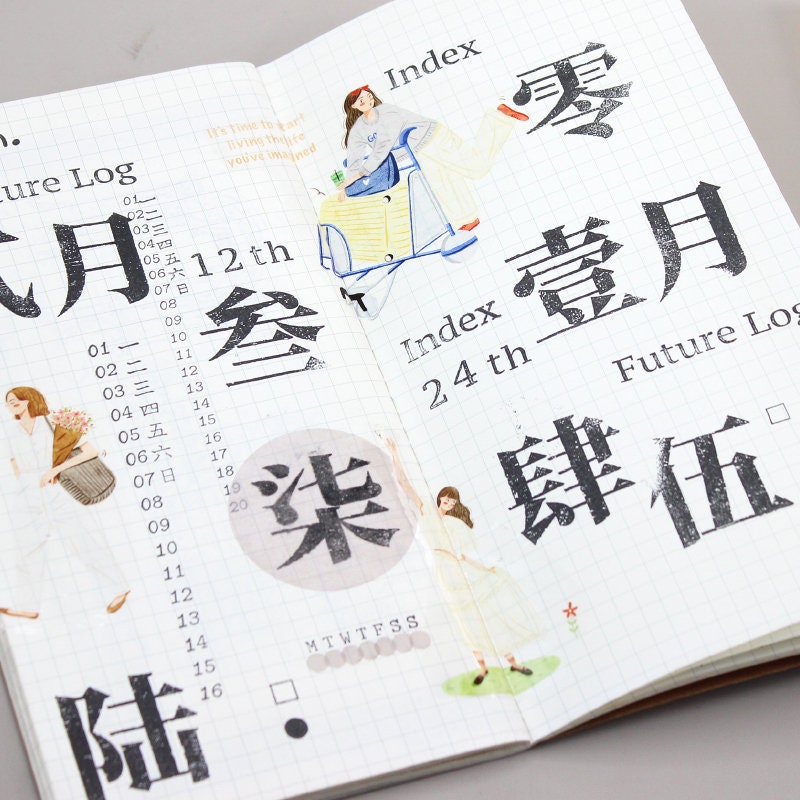 ture Log
月
01一
02二
03三
04四
05五
06六
07日
08
09
10
11
12
13
14
15
16
17
18
19
20
12th
叁
01 一
02 二
03 三
04 四
05 五
06 六
07 日
08
09
10
11
12
13
14
15
16
柒
MTWTFSS
陆
It's time to start
living the life
you've imagined
Index
零
GO
壹月
Index
24th
Future Log
肆伍